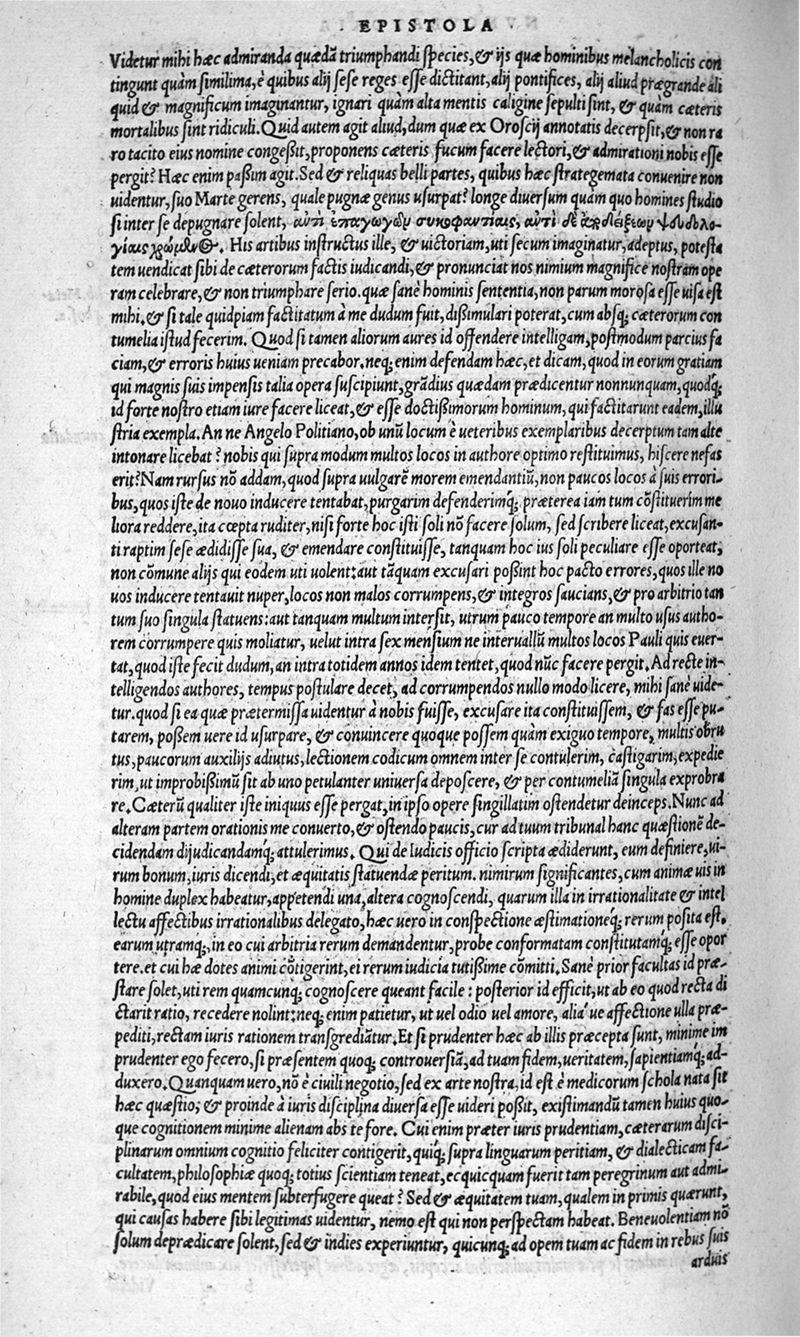 · EPISTOLA ·
Videtur mihi hæc admiranda quædā triumphandi species, & ijs quæ hominibus melancholicis con
tingunt quàm simillima, è quibus alij sese reges esse dictitant, alij pontifices, alij aliud prægrande ali
quid & magnificum imaginantur, ignari quàm alta mentis caligine sepulti sint, & quàm cæteris
mortalibus sint ridiculi. Quid autem agit aliud, dum quæ ex Oroscij annotatis decerpsit, & non ra
ro tacito eius nomine congeßit, proponens cæteris fucum facere lectori, & admirationi nobis esse
pergit? Hæc enim paßim agit. Sed & reliquas belli partes, quibus hæc strategemata conuenire non
uidentur, suo Marte gerens, quale pugnæ genus usurpat? longe diuersum quam quo homines studio
si inter se depugnare solent, αὐτὶ ἐπαγωγῶν συκοφαντίαις, αὐτὶ δὲ ἀποδείξεων ψευδολο-
γίαις χρώμενος. His artibus instructus ille, & uictoriam, uti secum imaginatur, adeptus, potesta
tem uendicat sibi de cæterorum factis iudicandi, & pronunciat nos nimium magnifice nostram ope
ram celebrare, & non triumphare serio. quæ sanè hominis sententia, non parum morosa esse uisa est
mihi. & si tale quidpiam factitatum à me dudum fuit, dißimulari poterat, cum absq; cæterorum con
tumelia istud fecerim. Quod si tamen aliorum aures id offendere intelligam, postmodum parcius fa
ciam, & erroris huius ueniam precabor. neq; enim defendam hæc, et dicam, quod in eorum gratiam
qui magnis suis impensis talia opera suscipiunt, grādius quædam prædicentur nonnunquam, quodq́;
id forte nostro etiam iure facere liceat, & esse doctißimorum hominum, qui factitarunt eadem, illu
stria exempla. An ne Angelo Politiano, ob unū locum è ueteribus exemplaribus decerptum tam alte
intonare licebat? nobis qui supra modum multos locos in authore optimo restituimus, hiscere nefas
erit? Nam rursus nō addam, quod supra uulgarē morem emendantiū, non paucos locos à suis errori-
bus, quos iste de nouo inducere tentabat, purgarim defenderimq́; præterea iam tum cōstituerim me
liora reddere, ita cœpta ruditer, nisi forte hoc isti soli nō facere solum, sed scribere liceat, excusan-
ti raptim sese ædidisse sua, & emendare constituisse, tanquam hoc ius soli peculiare esse oporteat,
non cōmune alijs qui eodem uti uolent: aut tāquam excusari poßint hoc pacto errores, quos ille no
uos inducere tentauit nuper, locos non malos corrumpens, & integros saucians, & pro arbitrio tan
tum suo singula statuens: aut tanquam multum intersit, utrum pauco tempore an multo usus autho-
rem corrumpere quis moliatur, uelut intra sex mensium ne interuallū multos locos Pauli quis euer-
tat, quod iste fecit dudum, an intra totidem annos idem tentet, quod nūc facere pergit. Ad recte in-
telligendos authores, tempus postulare decet, ad corrumpendos nullo modo licere, mihi sanè uide-
tur. quod si ea quæ prætermissa uidentur à nobis fuisse, excusare ita constituissem, & fas esse pu-
tarem, possem uere id usurpare, & conuincere quoque possem quam exiguo tempore, multis obru
tus, paucorum auxilijs adiutus, lectionem codicum omnem inter se contulerim, castigarim, expedie
rim, ut improbißimū sit ab uno petulanter uniuersa deposcere, & per contumeliā singula exprobra
re. Cæterū qualiter iste iniquus esse pergat, in ipso opere singillatim ostendetur deinceps. Nunc ad
alteram partem orationis me conuerto, & ostendo paucis, cur ad tuum tribunal hanc quæstionē de-
cidendam dijudicandamq́; attulerimus. Qui de Iudicis officio scripta ædiderunt, eum definiere, ui-
rum bonum, iuris dicendi, et æquitatis statuendæ peritum. nimirum significantes, cum animæ uis in
homine duplex habeatur, appetendi una, altera cognoscendi, quarum illa in irrationalitate & intel
lectu affectibus irrationalibus delegato, hæc uero in conspectione æstimationeq́; rerum posita est.
earum utramq;, in eo cui arbitria rerum demandentur, probe conformatam constitutamq́; esse opor
tere. et cui hæ dotes animi cōtigerint, ei rerum iudicia tutißime cōmitti. Sanè prior facultas id præ-
stare solet, uti rem quamcunq; cognoscere queant facile: posterior id efficit, ut ab eo quod recta di
ctarit ratio, recedere nolint: neq; enim patietur, ut uel odio uel amore, alia'ue affectione ulla præ-
pediti, rectam iuris rationem transgrediātur. Et si prudenter hæc ab illis præcepta sunt, minime im
prudenter ego fecero, si præsentem quoq; controuersiā, ad tuam fidem, ueritatem, sapientiamq́; ad-
duxero. Quanquam uero, nō è ciuili negotio, sed ex arte nostra, id est è medicorum schola nata sit
hæc quæstio; & proinde à iuris disciplina diuersa esse uideri poßit, existimandū tamen huius quo-
que cognitionem minime alienam abs te fore. Cui enim præter iuris prudentiam, cæterarum disci-
plinarum omnium cognitio feliciter contigerit, quiq́; supra linguarum peritiam, & dialecticam fa-
cultatem, philosophiæ quoq; totius scientiam teneat, ecquicquam fuerit tam peregrinum aut admi-
rabile, quod eius mentem subterfugere queat? Sed & æquitatem tuam, qualem in primis quærunt,
qui causas habere sibi legitimas uidentur, nemo est qui non perspectam habeat. Beneuolentiam nō
solum deprædicare solent, sed & indies experiuntur, quicunq; ad opem tuam ac fidem in rebus suis
arduis